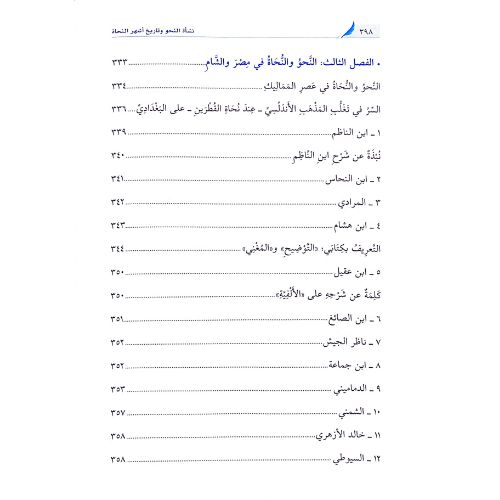 ٣٩٨ نشأة النحو وتاريخ أشهر النحاة
• الفصل الثالث: النَّحوُ والنُّحَاةُ في مِصْرَ والشَّامِ ٣٣٣
النَّحوُ والنُّحَاةُ في عَصرِ المَمَالِيكِ ٣٣٤
السّرُّ في تَغَلُّبِ المَذْهَبِ الأَندَلُسِيِّ ـ عِندَ نُحَاةِ القُطْرَينِ ـ على البَغْدَادِيِّ ٣٣٦
١ ـ ابن الناظم ٣٣٩
نُبْذَةٌ عن شَرْحِ ابنِ النَّاظِمِ ٣٤٠
٢ ـ ابن النحاس ٣٤١
٣ ـ المرادي ٣٤٢
٤ ـ ابن هشام ٣٤٣
التَّعرِيفُ بكِتَابَي: «التَّوْضِيحِ» و«المُغْنِي» ٣٤٤
٥ ـ ابن عقيل ٣٥٠
كَلِمَةٌ عن شَرْحِهِ على «الأَلْفِيَّةِ» ٣٥٠
٦ ـ ابن الصائغ ٣٥١
٧ ـ ناظر الجيش ٣٥٢
٨ ـ ابن جماعة ٣٥٢
٩ ـ الدماميني ٣٥٣
١٠ ـ الشمني ٣٥٧
١١ ـ خالد الأزهري ٣٥٨
١٢ ـ السيوطي ٣٥٨